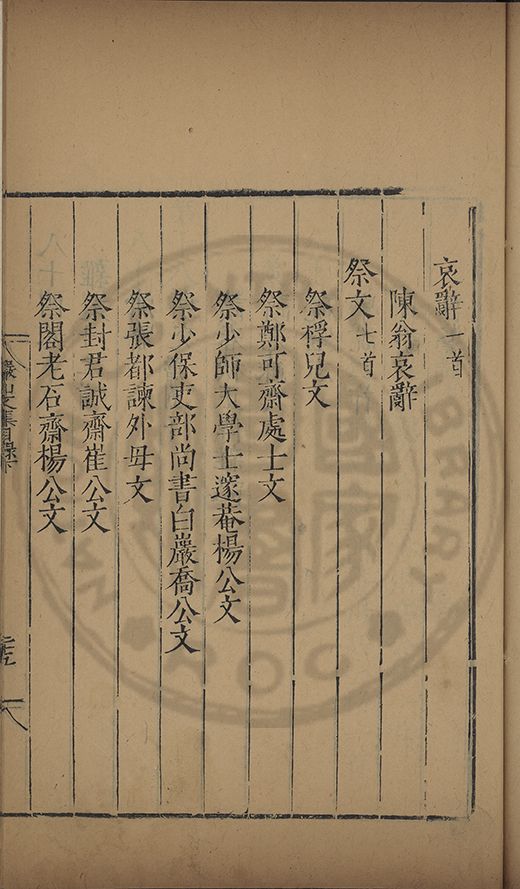 哀辭一首
陳翁哀辭
祭文七首
祭稃兒文
祭鄭可齋處士文
祭少師大學士邃菴楊公文
祭少保吏部尚書白巖喬公文
祭張都諫外母文
祭封君誠齋崔公文
祭閣老石齋楊公文
儼山文集目錄下